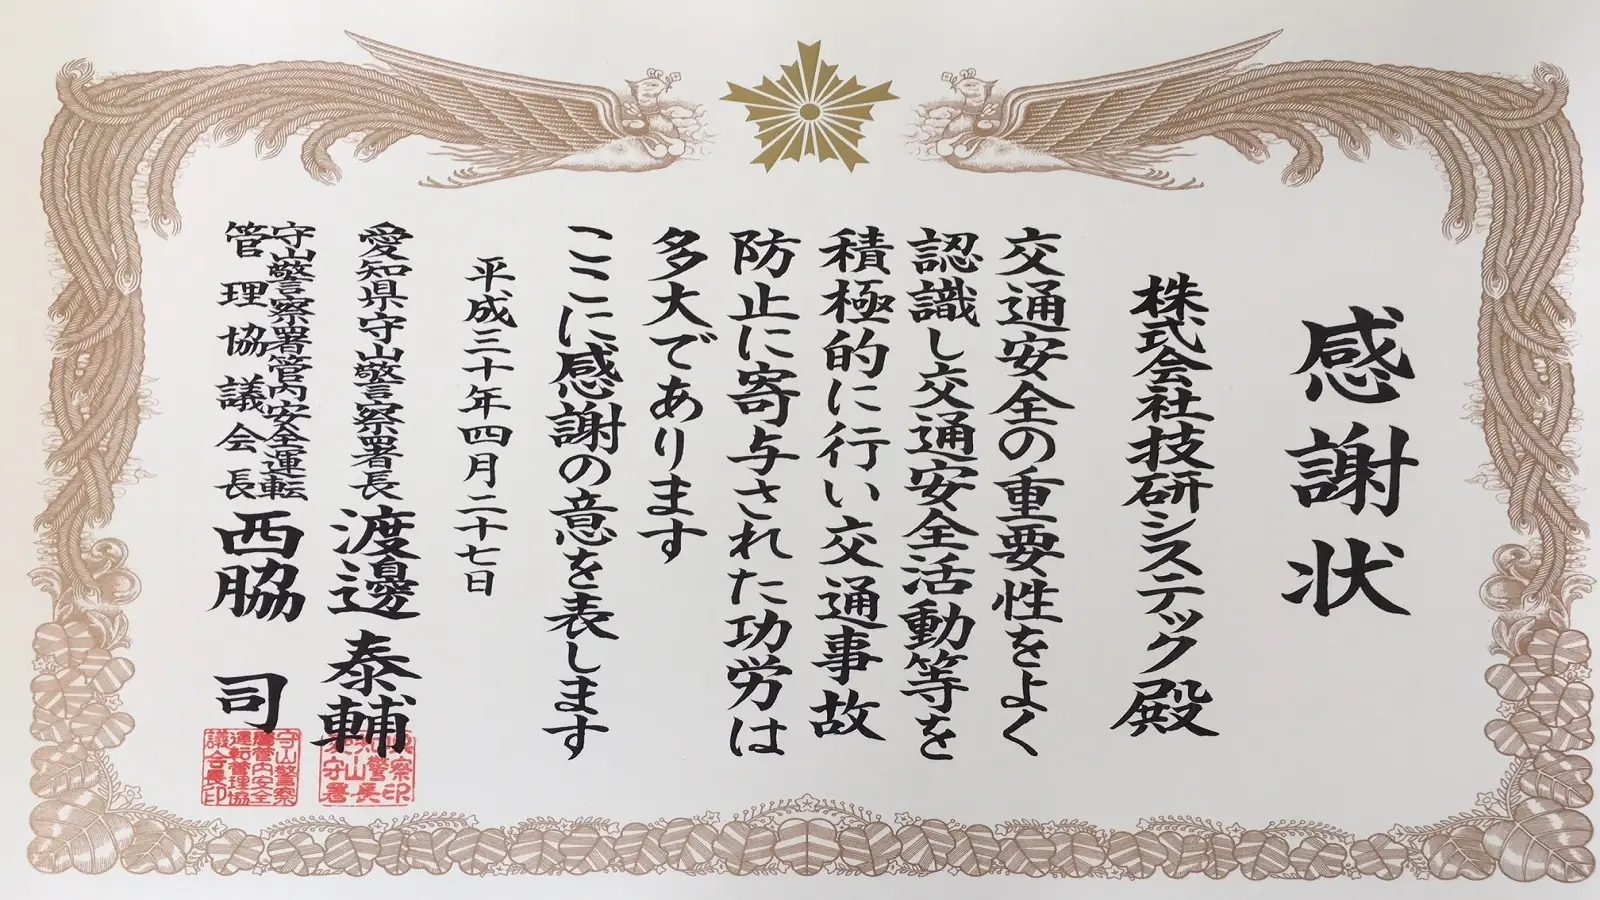 感謝状
株式会社技研システック殿
交通安全の重要性をよく
認識し交通安全活動等を
積極的に行い交通事故
防止に寄与された功労は
多大であります
ここに感謝の意を表します
平成三十年四月二十七日
愛知県守山警察署長 渡邊泰輔
守山警察署管内安全運転
管理協議会長 西脇司
守山警察
署管内安全
運転管理協
議会長印